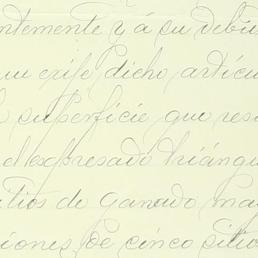 ntemente y á su debi
exije dicho artícu
superfície que res
el espresado triángu
sitios de ganado ma
iones, de cinco sitio